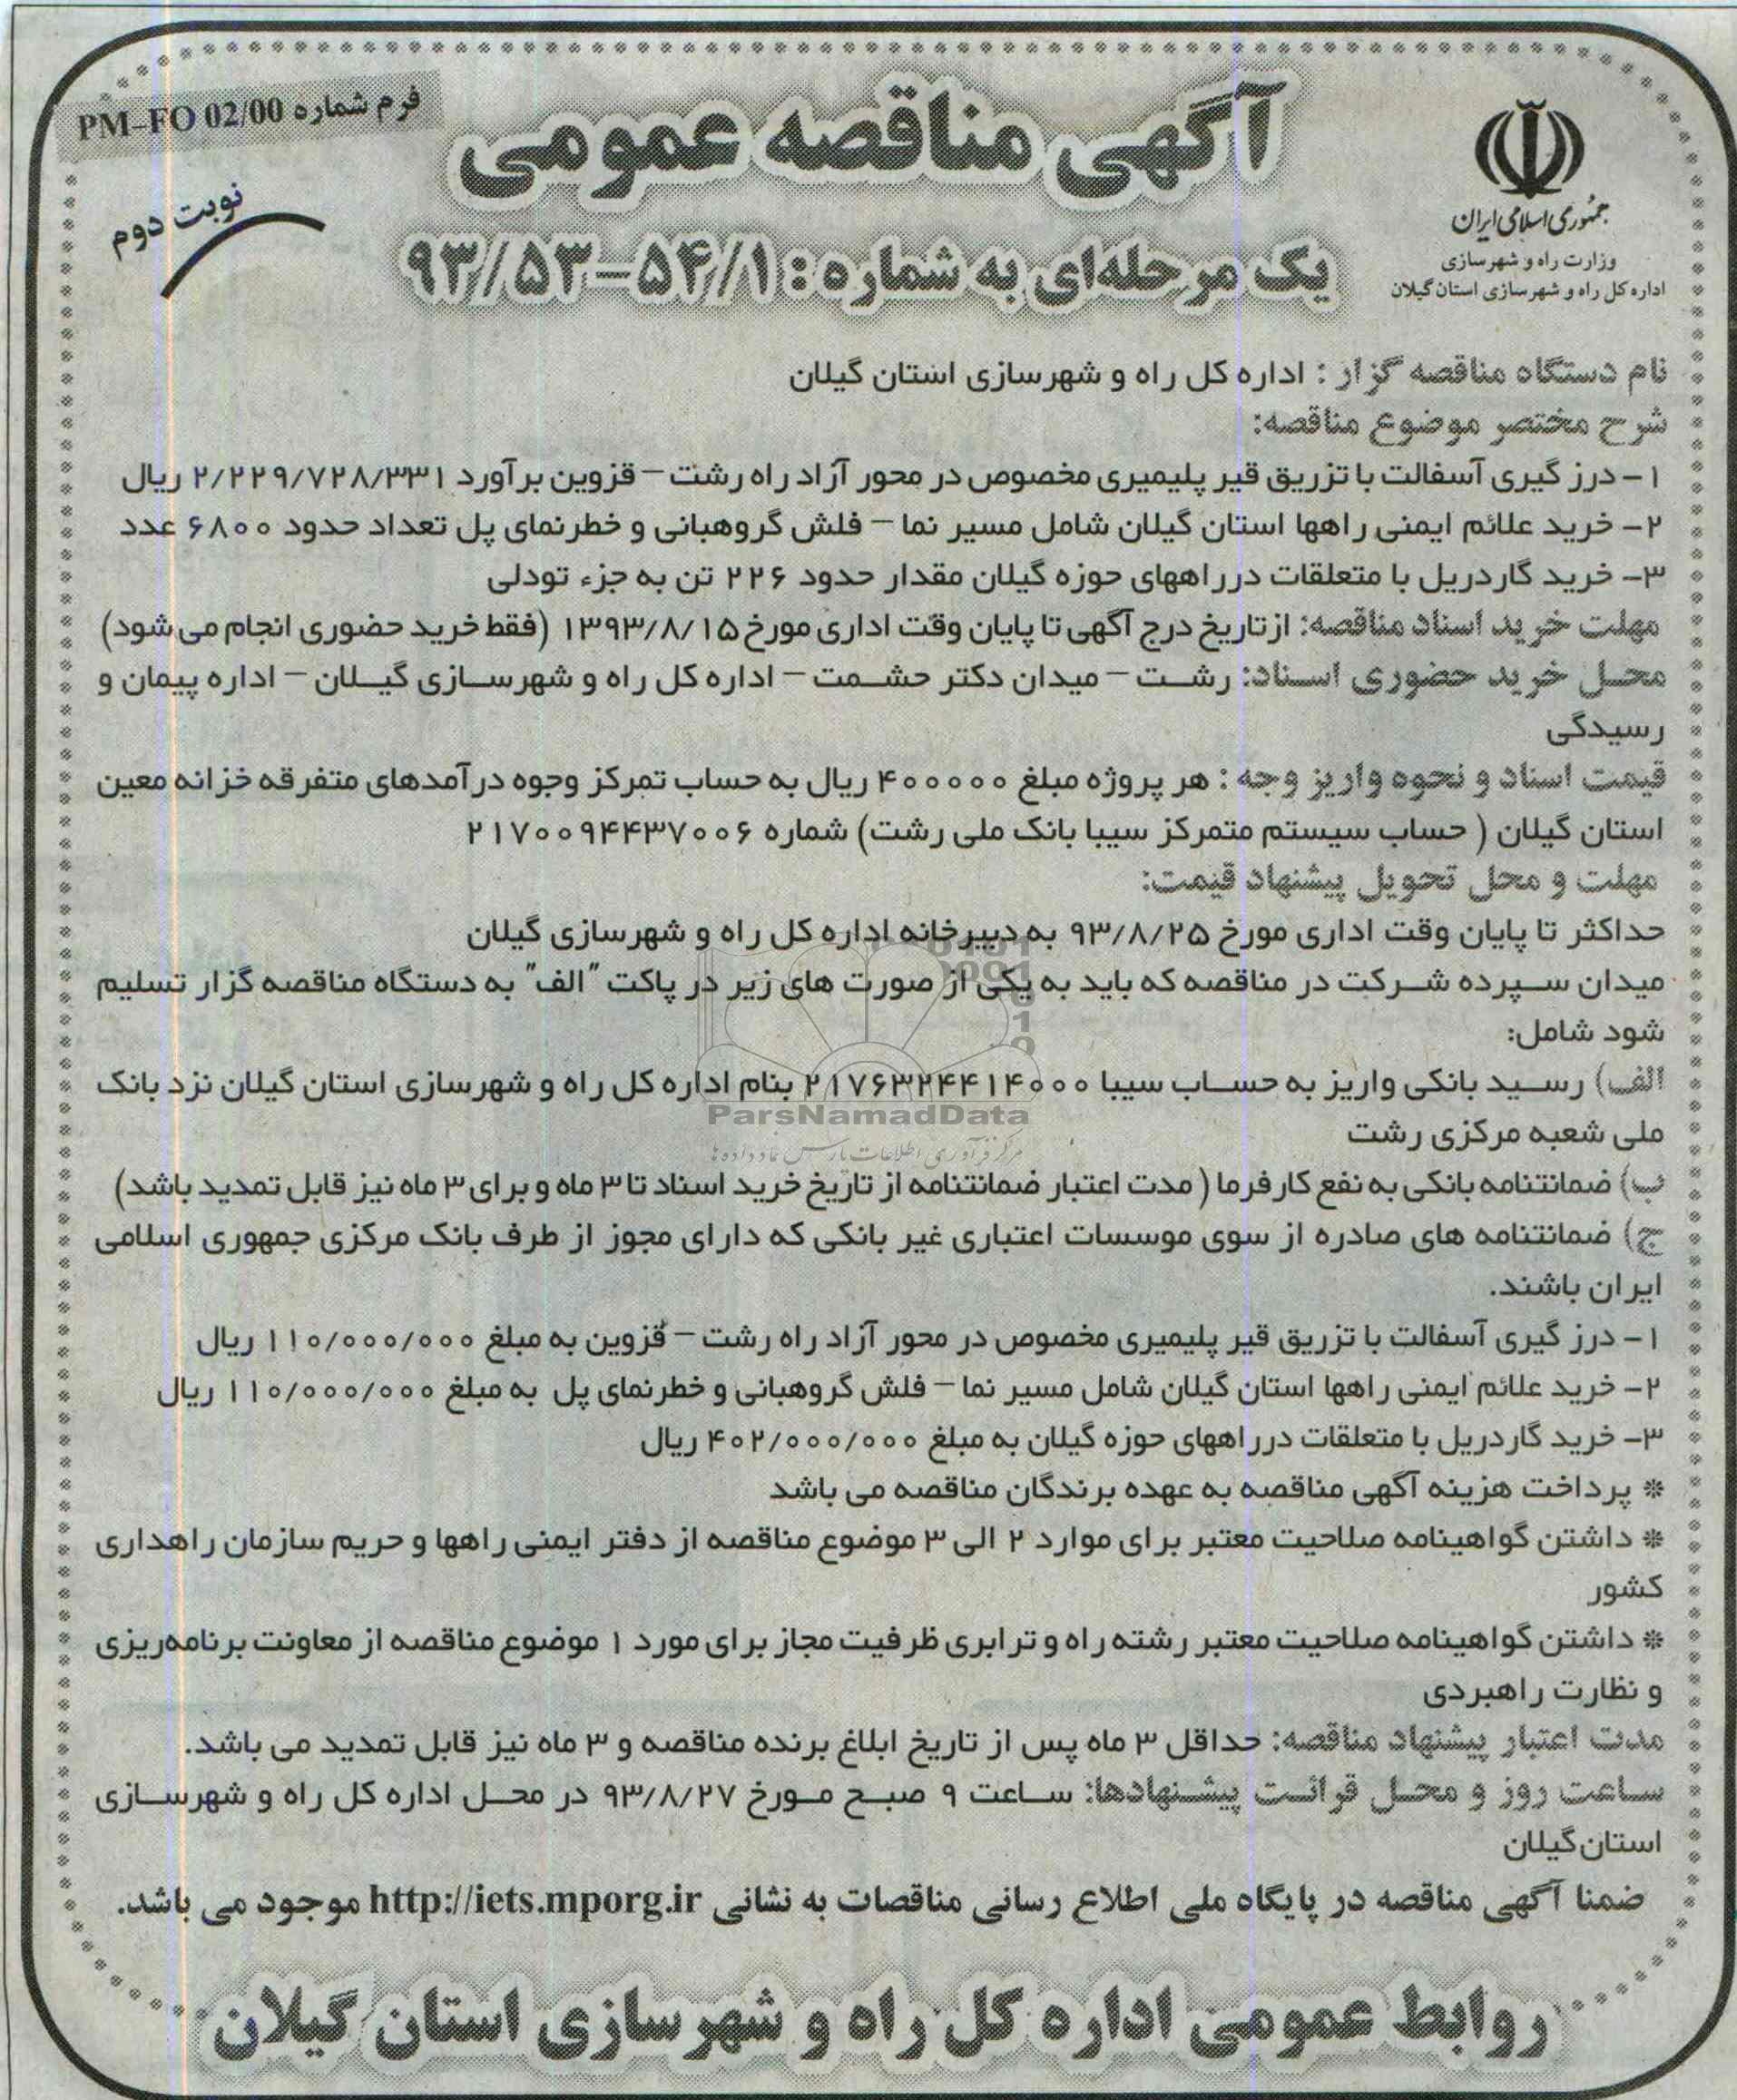 فرم شماره PM-FO 02/00
نوبت دوم
آگهی مناقصه عمومی
یک مرحله‌ای به شماره: ۹۳/۵۳-۵۴/۱
جمهوری اسلامی ایران
وزارت راه و شهرسازی
اداره کل راه و شهرسازی استان گیلان
نام دستگاه مناقصه گزار : اداره کل راه و شهرسازی استان گیلان
شرح مختصر موضوع مناقصه:
۱- درز گیری آسفالت با تزریق قیر پلیمیری مخصوص در محور آزاد راه رشت – قزوین برآورد ۲/۲۲۹/۷۲۸/۳۳۱ ریال
۲- خرید علائم ایمنی راهها استان گیلان شامل مسیر نما – فلش گروهبانی و خطرنمای پل تعداد حدود ۶۸۰۰ عدد
۳- خرید گاردریل با متعلقات درراههای حوزه گیلان مقدار حدود ۲۲۶ تن به جزء تودلی
مهلت خرید اسناد مناقصه: ازتاریخ درج آگهی تا پایان وقت اداری مورخ ۱۳۹۳/۸/۱۵ (فقط خرید حضوری انجام می شود)
محل خرید حضوری اسناد: رشت – میدان دکتر حشمت – اداره کل راه و شهرسازی گیلان – اداره پیمان و
رسیدگی
قیمت اسناد و نحوه واریز وجه : هر پروژه مبلغ ۴۰۰۰۰۰ ریال به حساب تمرکز وجوه درآمدهای متفرقه خزانه معین
استان گیلان ( حساب سیستم متمرکز سیبا بانک ملی رشت) شماره ۲۱۷۰۰۹۴۴۳۷۰۰۶
مهلت و محل تحویل پیشنهاد قیمت:
حداکثر تا پایان وقت اداری مورخ ۹۳/۸/۲۵ به دبیرخانه اداره کل راه و شهرسازی گیلان
میدان سپرده شرکت در مناقصه که باید به یکی از صورت های زیر در پاکت "الف" به دستگاه مناقصه گزار تسلیم
شود شامل:
الف) رسید بانکی واریز به حساب سیبا ۲۱۷۶۳۲۴۴۱۴۰۰۰ بنام اداره کل راه و شهرسازی استان گیلان نزد بانک
ملی شعبه مرکزی رشت
ParsNamadData
مرکز فرآوری اطلاعات پارس نماد داده ها
ب) ضمانتنامه بانکی به نفع کارفرما ( مدت اعتبار ضمانتنامه از تاریخ خرید اسناد تا ۳ ماه و برای ۳ ماه نیز قابل تمدید باشد)
ج) ضمانتنامه های صادره از سوی موسسات اعتباری غیر بانکی که دارای مجوز از طرف بانک مرکزی جمهوری اسلامی
ایران باشند.
۱- درز گیری آسفالت با تزریق قیر پلیمیری مخصوص در محور آزاد راه رشت – قزوین به مبلغ ۱۱۰/۰۰۰/۰۰۰ ریال
۲- خرید علائم ایمنی راهها استان گیلان شامل مسیر نما – فلش گروهبانی و خطرنمای پل به مبلغ ۱۱۰/۰۰۰/۰۰۰ ریال
۳- خرید گاردریل با متعلقات درراههای حوزه گیلان به مبلغ ۴۰۲/۰۰۰/۰۰۰ ریال
* پرداخت هزینه آگهی مناقصه به عهده برندگان مناقصه می باشد
* داشتن گواهینامه صلاحیت معتبر برای موارد ۲ الی ۳ موضوع مناقصه از دفتر ایمنی راهها و حریم سازمان راهداری
کشور
* داشتن گواهینامه صلاحیت معتبر رشته راه و ترابری ظرفیت مجاز برای مورد ۱ موضوع مناقصه از معاونت برنامه‌ریزی
و نظارت راهبردی
مدت اعتبار پیشنهاد مناقصه: حداقل ۳ ماه پس از تاریخ ابلاغ برنده مناقصه و ۳ ماه نیز قابل تمدید می باشد.
ساعت روز و محل قرائت پیشنهادها: ساعت ۹ صبح مورخ ۹۳/۸/۲۷ در محل اداره کل راه و شهرسازی
استان گیلان
ضمنا آگهی مناقصه در پایگاه ملی اطلاع رسانی مناقصات به نشانی http://iets.mporg.ir موجود می باشد.
روابط عمومی اداره کل راه و شهرسازی استان گیلان